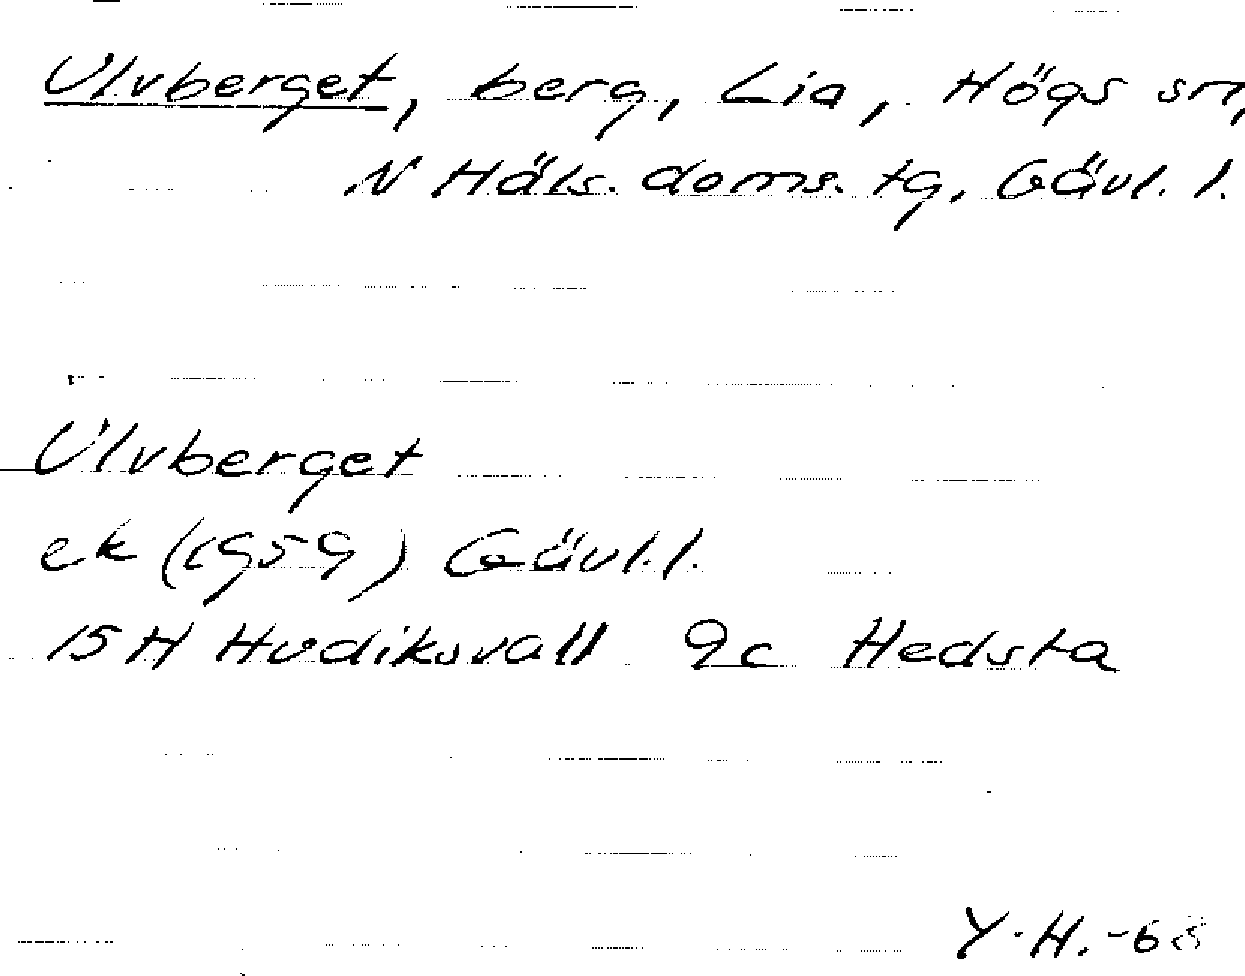 Ulvberget, berg, Lia, Högs sn,
N Häls. doms. tg, Gävl. l.
Ulvberget
ek (1959) Gävl. l.
15H Hudiksvall 9c Hedsta
Y. H. -68